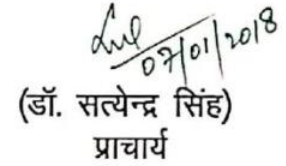 07/01/2018
(डॉ. सत्येन्द्र सिंह)
प्राचार्य